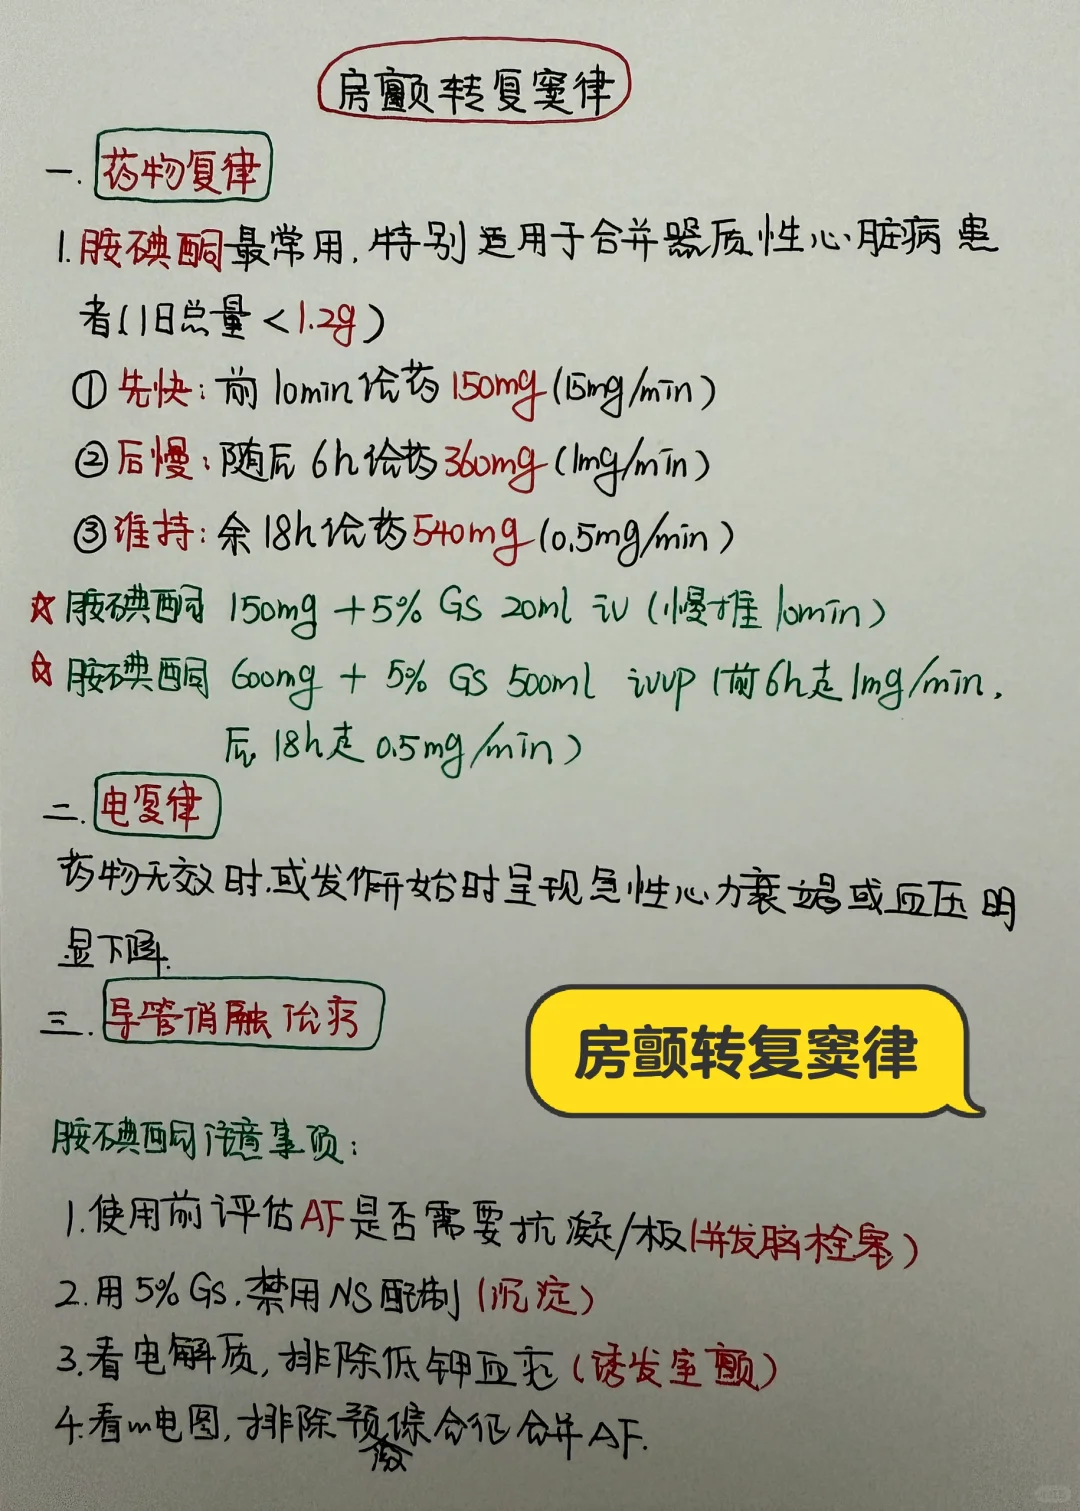 房颤转复窦律
一. 药物复律
1. 胺碘酮最常用, 特别适用于合并器质性心脏病患
者(1日总量<1.2g)
① 先快: 前10min给药150mg(15mg/min)
② 后慢: 随后6h给药360mg(1mg/min)
③ 维持: 余18h给药540mg(0.5mg/min)
☆ 胺碘酮 150mg + 5% GS 20ml iv (慢推10min)
☆ 胺碘酮 600mg + 5% GS 500ml ivvp (前6h走1mg/min,
后18h走0.5mg/min)
二. 电复律
药物无效时.或发作开始时呈现急性心力衰竭或血压明
显下降.
三. 导管消融治疗
房颤转复窦律
胺碘酮注意事项:
1.使用前评估AF是否需要抗凝/板(并发脑栓塞)
2.用5%GS.禁用NS配制(沉淀)
3.看电解质,排除低钾血症(诱发室颤)
4.看心电图,排除预激综合征合并AF.
小红书